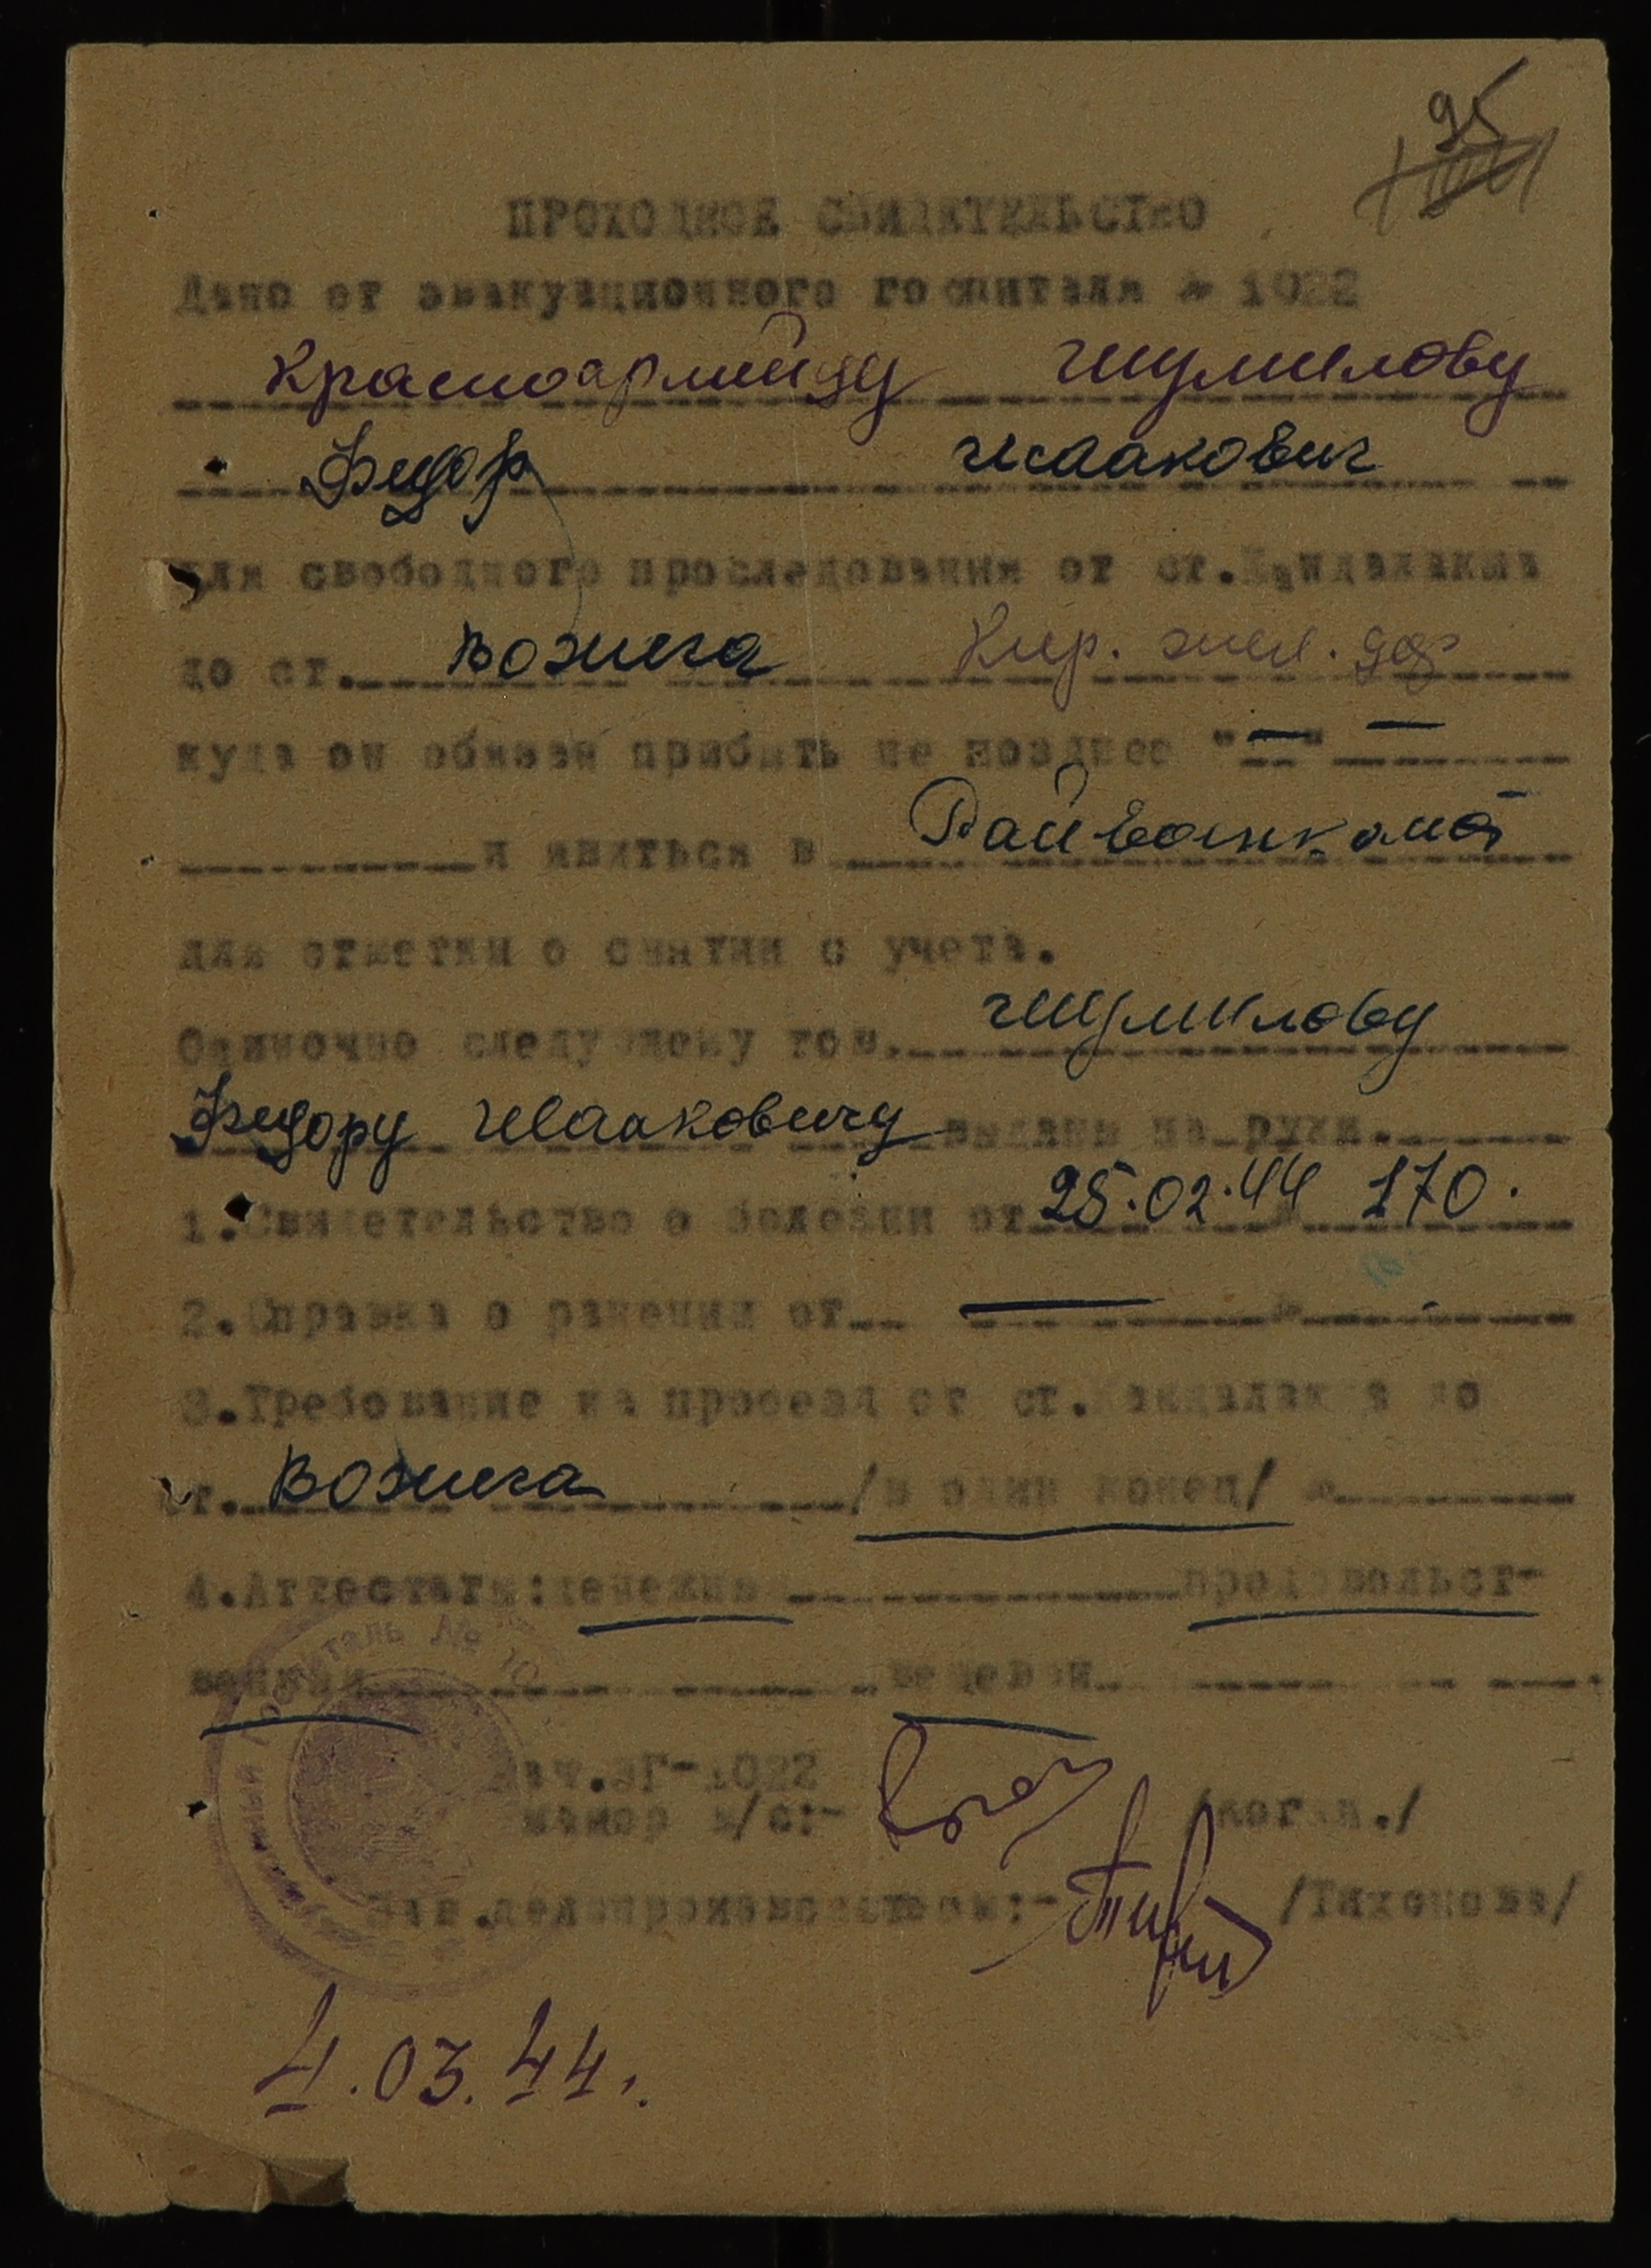 95
ПРОХОДНОЕ СВИДЕТЕЛЬСТВО
Дано от эвакуационного госпиталя № 1022
Красноармейцу Шумилову
Федор Исаакович
для свободного проследования от ст. Кандалакша
до ст. Вожега
куда он обязан прибыть не позднее "—" —
и явиться в Райвоенкомат
для отметки о снятии с учета.
Одиночно следующему тов. Шумилову
Федору Исааковичу выданы на руки.
1. Свидетельство о болезни от 25.02.44 № 170.
2. Справка о ранении от — №
3. Требование на проезд от ст. Кандалакша до
ст. Вожега /в один конец/ №
4. Аттестаты: денежный продовольст-
венный вещевой
Нач. ЭГ-1022
майор м/с:- /Коган./
Зав. делопроизводством:- /Тихонова/
госпиталь №
4.03.44.